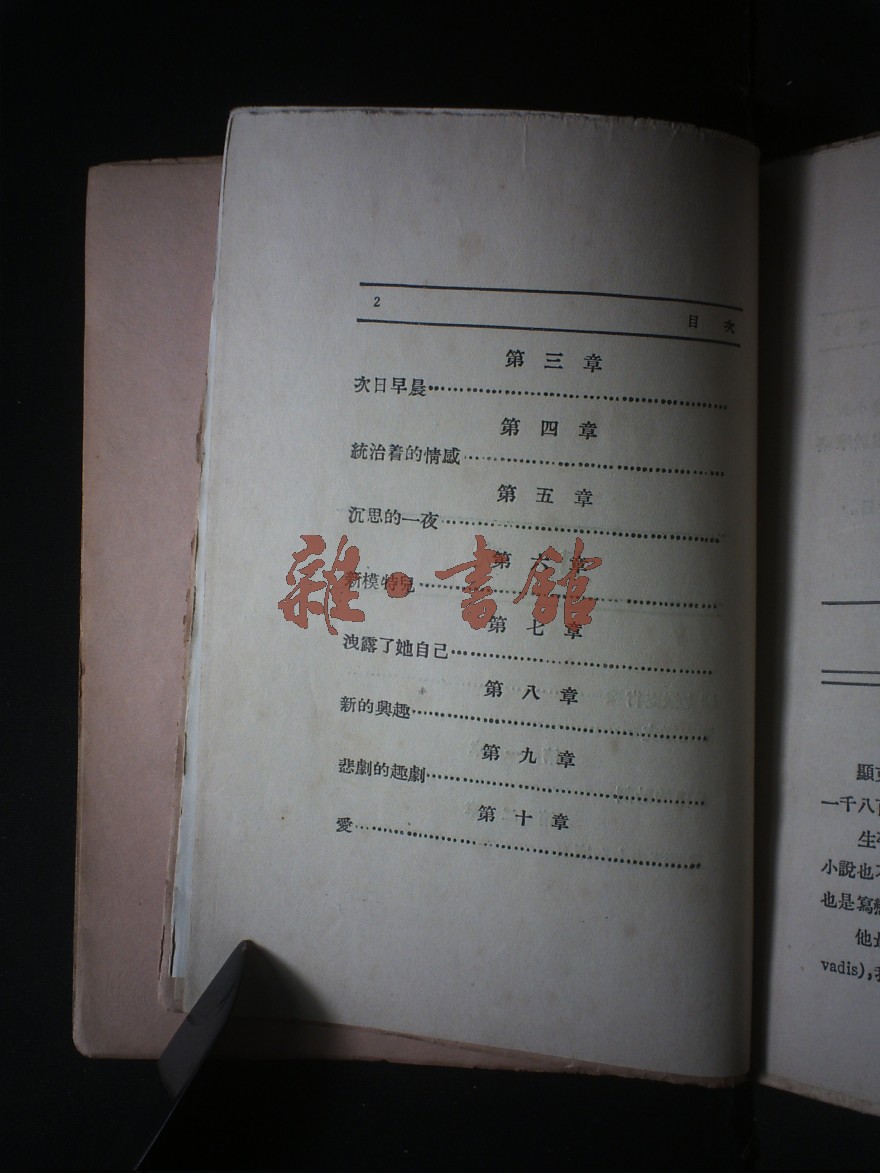 2
目 次
第 三 章
次日早晨
第 四 章
統治着的情感
第 五 章
沉思的一夜
第 六 章
新模特兒
第 七 章
洩露了她自己
第 八 章
新的興趣
第 九 章
悲劇的趣劇
第 十 章
愛
雜·書館
一千八
小說也
也是寫
他
vadis),